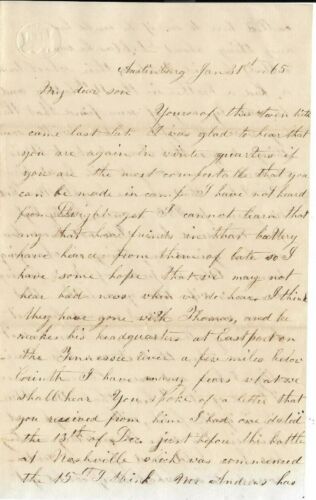 Austinburg Jan 31st 65
My dear son
Yours of the
came last I was glad to hear that
you are again in winter quarters if
you are the most comfortable that you
can be made in camp I have not heard
from Dwight yet I cannot learn that
any that have friends in that battery
have heard from them of late so I
have some hope that we may not
hear bad news when we do hear, I think
they have gone with Thomas, and he
makes his headquarters at Eastport on
the Tennessee river a few miles below
Corinth I have many fears what we
shall hear You spoke of a letter that
you received from him I had one dated
the 13th of Dec just before the battle
at Nashville which was commenced
the 15th I think Mrs Andrews has